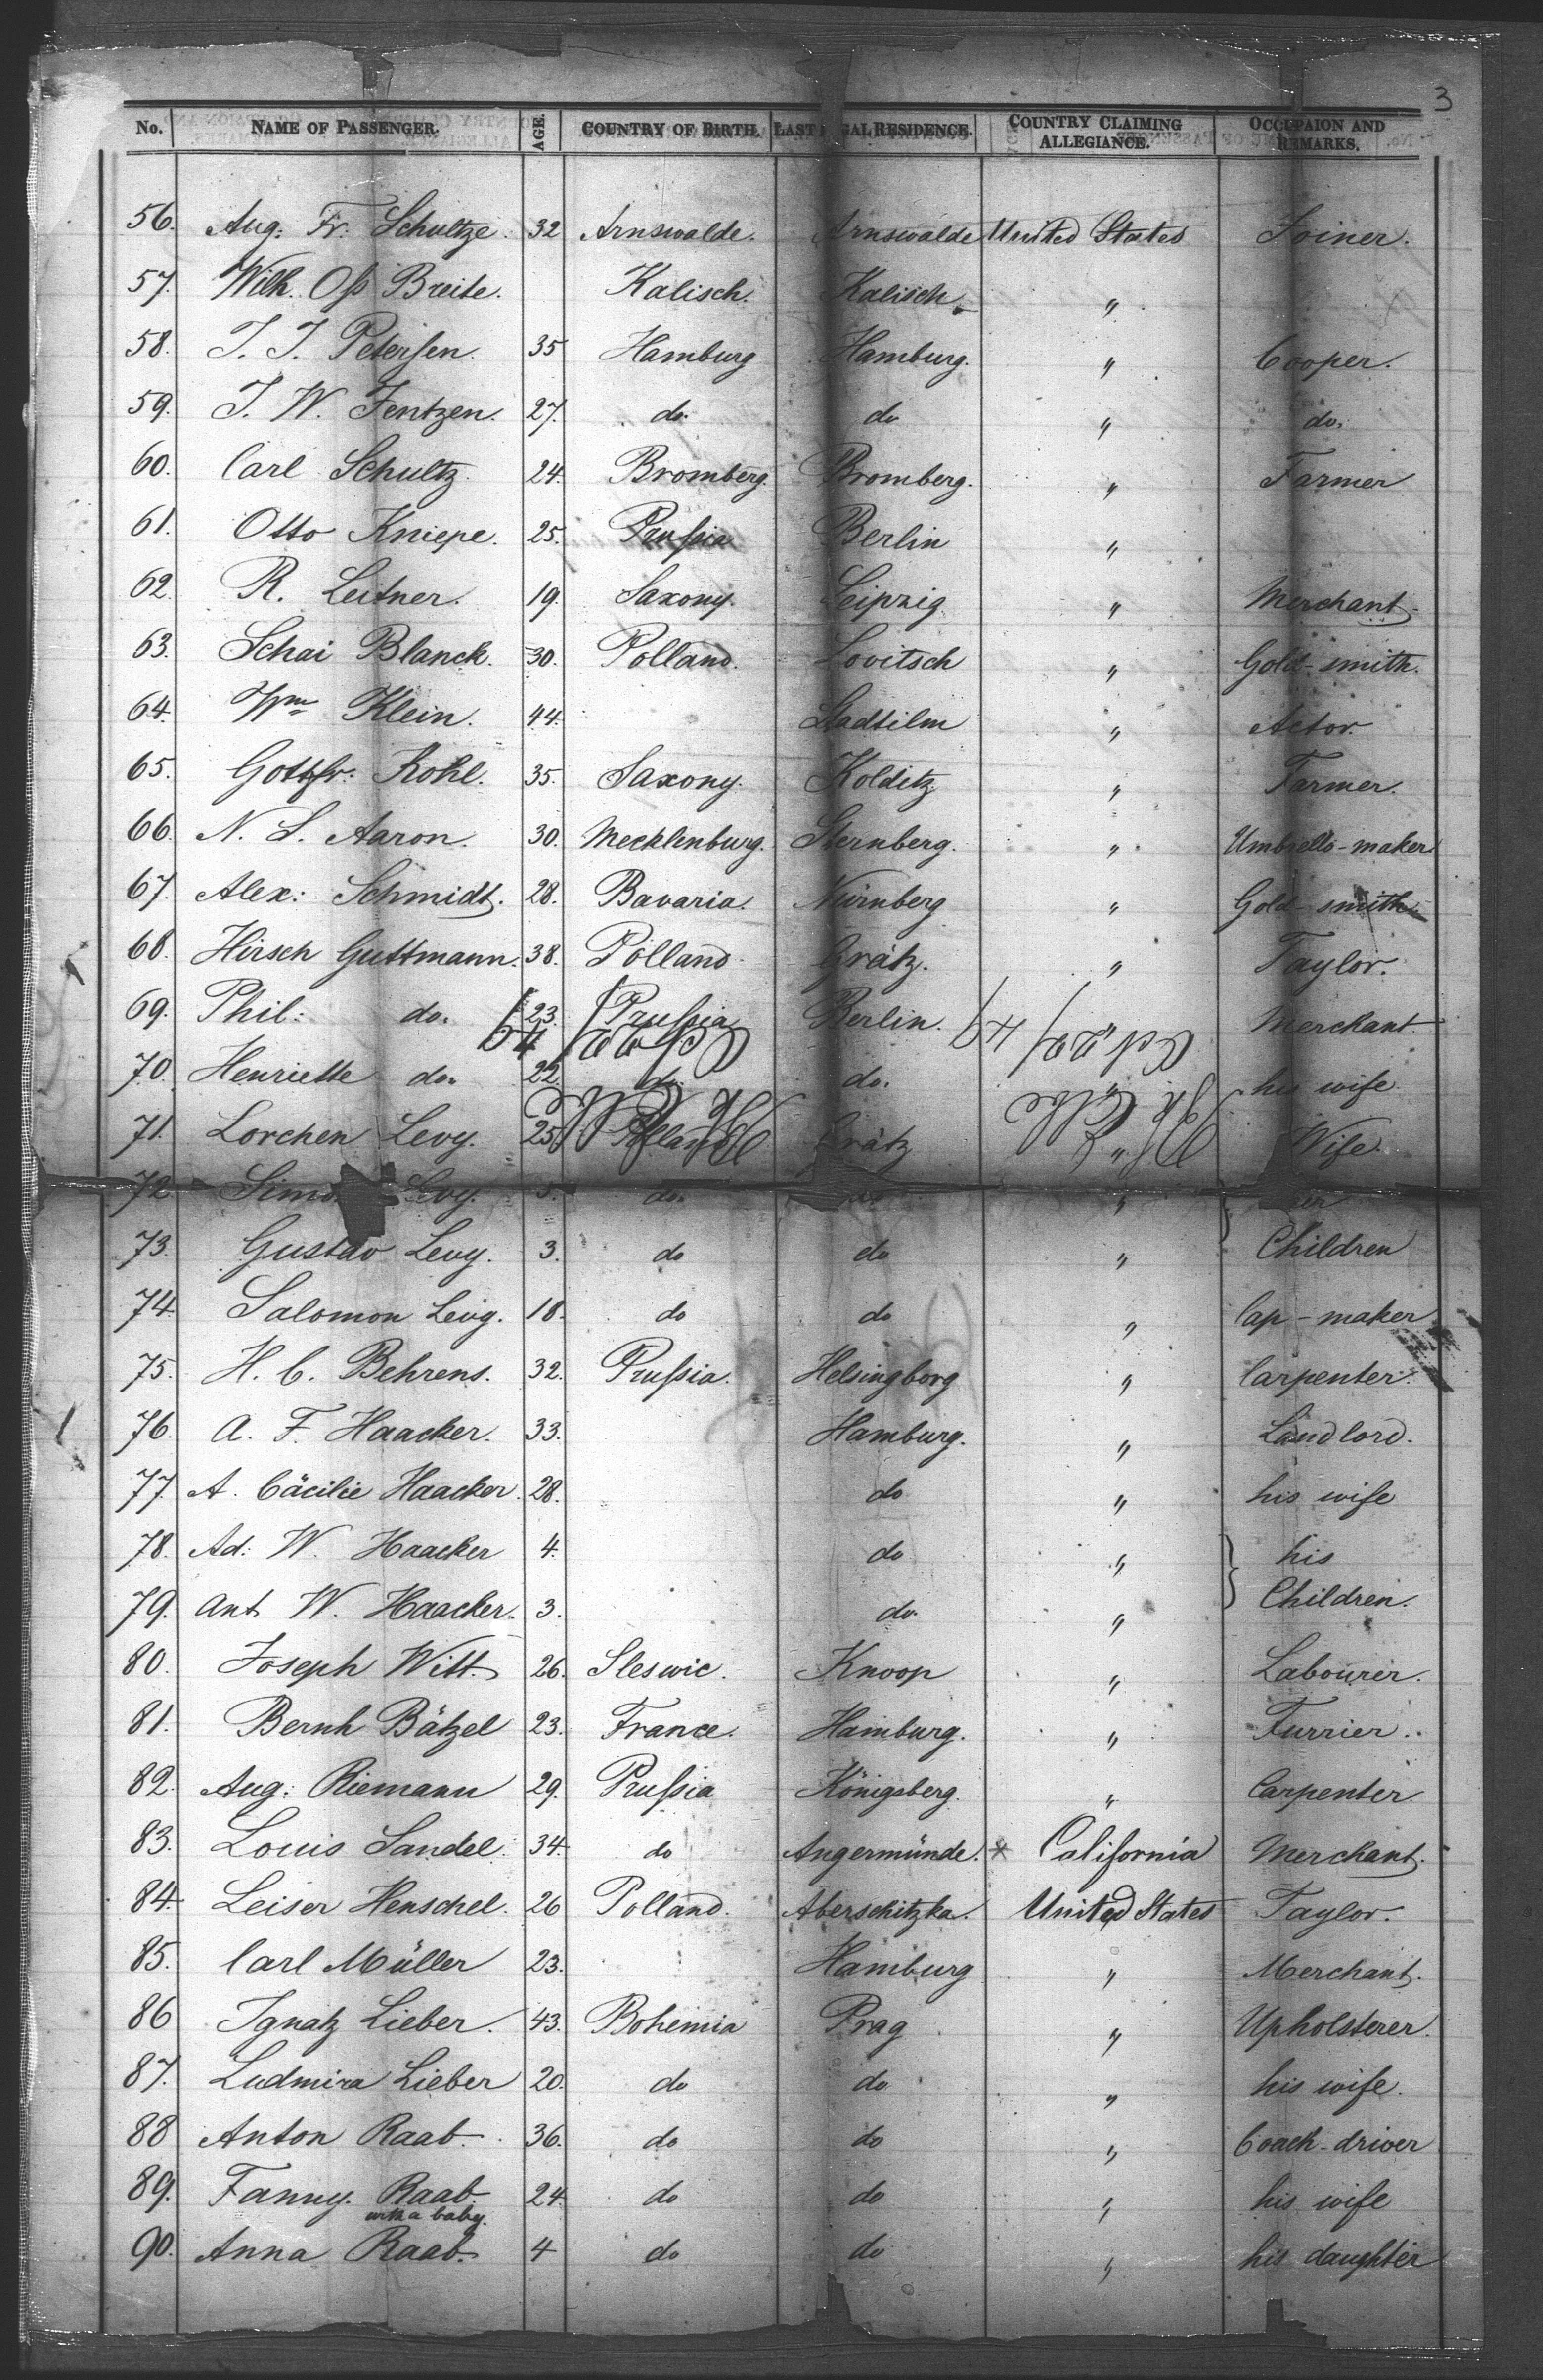 3
No. NAME OF PASSENGER. AGE. COUNTRY OF BIRTH. LAST GAL RESIDENCE. COUNTRY CLAIMING ALLEGIANCE. OCCUPAION AND REMARKS.
56. Aug: Fr. Schultze. 32 Arnswalde. Arnswalde United States Joiner.
57. Wilh. Oſs Breite. Kalisch. Kalisch "
58. J. J. Peterſen. 35 Hamburg Hamburg. " Cooper.
59. J. W. Jentzen. 27. do. do " do.
60. Carl Schultz. 24. Bromberg. Bromberg. " Farmer
61. Otto Kniepe. 25. Pruſsia Berlin "
62. R. Leitner. 19. Saxony. Leipzig " Merchant.
63. Schai Blanck. 30. Polland. Lovitsch " Gold-smith.
64. Wm Klein. 44. Stadtilm " Actor.
65. Gottfr: Kohl. 35. Saxony. Kolditz " Farmer.
66. N. S. Aaron. 30. Mecklenburg. Sternberg. " Umbrella-maker
67. Alex: Schmidt. 28. Bavaria. Nürnberg " Gold-smith.
68. Hirsch Guttmann. 38. Polland Grätz. " Taylor.
69. Phil: do. 23. Pruſsia Berlin. " Merchant
70. Henriette do. 22. do. do. " his wife.
71. Lorchen Levy. 25. Polland Grätz " Wife.
72. Levy. do. "
73. Gustav Levy. 3. do do " Children
74. Salomon Levy. 18. do do " Cap-maker
75. H. C. Behrens. 32. Pruſsia. Helsingborg " Carpenter.
76. A. F. Haacker. 33. Hamburg. " Landlord.
77. A. Cäcilie Haacker. 28. do " his wife
78. Ad: W. Haacker 4. do " his
79. Ant W. Haacker. 3. do. " Children.
80. Joseph Witt. 26. Sleswic. Knoop " Labourer.
81. Bernh Bätzel 23. France. Hamburg. " Furrier.
82. Aug: Riemann 29. Pruſsia Königsberg. " Carpenter.
83. Louis Sandel. 34. do Angermünde. × California Merchant.
84. Leiser Henschel. 26 Polland. Aberschitzka. United States Taylor.
85. Carl Müller 23. Hamburg " Merchant.
86 Ignatz Lieber. 43. Bohemia Prag " Upholsterer.
87. Ludmira Lieber 20. do do " his wife.
88 Anton Raab. 36. do do " Coach-driver
89. Fanny. Raab 24. do do " his wife
with a baby.
90. Anna Raab. 4 do do " his daughter